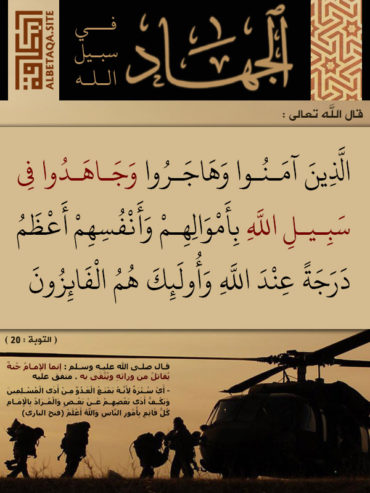 ALBETAQA.SITE
الجهاد
في
سبيل
الله
قال الله تعالى :
الَّذِينَ آمَنُوا وَهَاجَرُوا وَجَاهَدُوا فِي
سَبِيلِ اللَّهِ بِأَمْوَالِهِمْ وَأَنْفُسِهِمْ أَعْظَمُ
دَرَجَةً عِنْدَ اللَّهِ وَأُولَئِكَ هُمُ الْفَائِزُونَ
( التوبة : 20 )
قال صلى الله عليه وسلم : إنما الإمامُ جُنةٌ
يُقاتَلُ من ورائِهِ ويُتَّقى به . متفق عليه
- أَيْ سُتْرَةٌ لِأَنَّهُ يَمْنَعُ الْعَدُوَّ مِنْ أَذَى الْمُسْلِمِينَ
وَيَكُفُّ أَذَى بَعْضِهِمْ عَنْ بَعْضٍ وَالْمُرَادُ بِالْإِمَامِ
كُلُّ قَائِمٍ بِأُمُورِ النَّاسِ وَاللَّهُ أَعْلَمُ (فتح الباري)